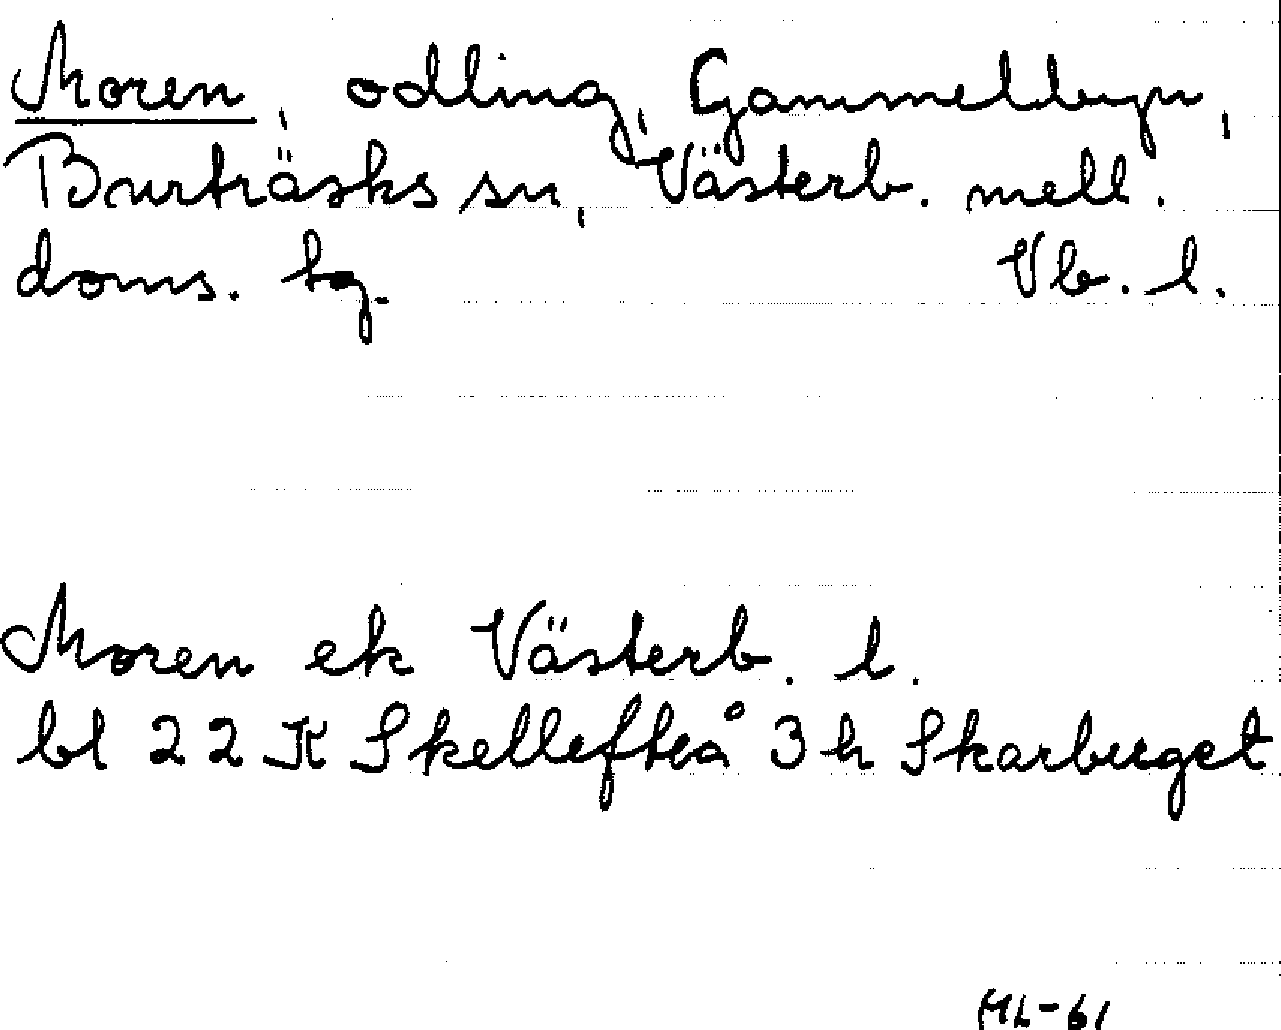 Moren, odling, Gammelbyn,
Burträsks sn, Västerb. mell.
doms. tg. Vb. l.
Moren ek Västerb. l.
bl 22 K Skellefteå 3 h Skarberget
ML-61